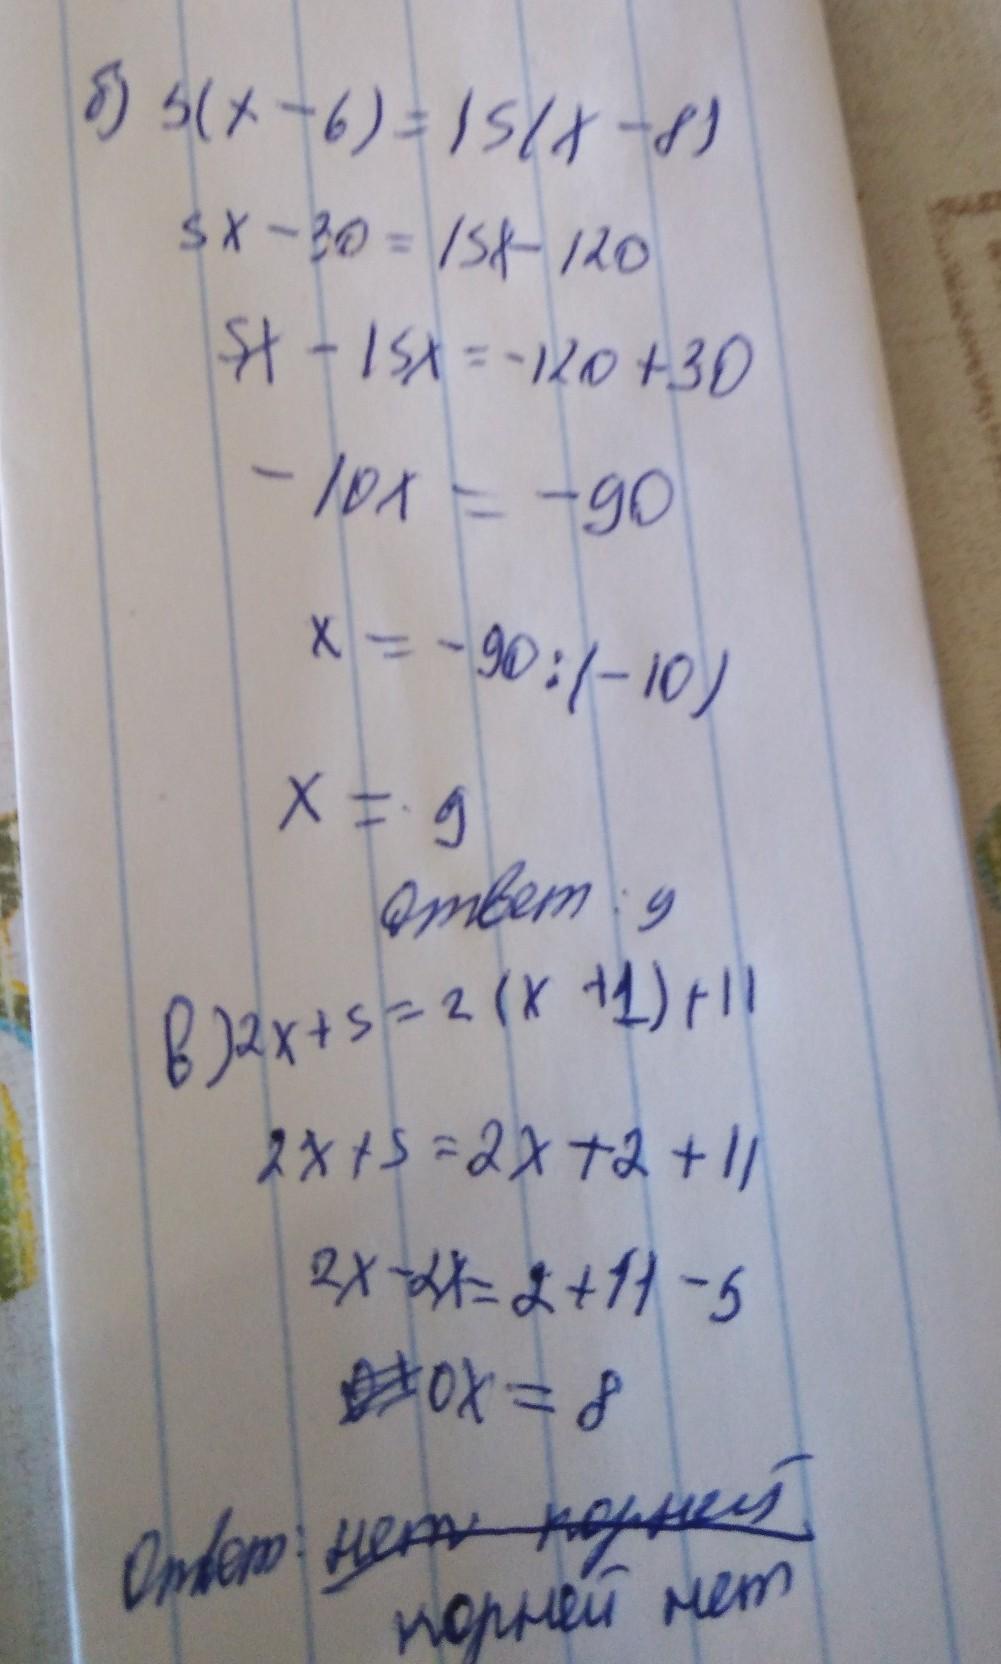 б) 5(x - 6) = 15(x - 8)
5x - 30 = 15x - 120
5x - 15x = -120 + 30
- 10x = -90
x = -90 : (-10)
x = 9
Ответ : 9
в) 2x + 5 = 2 (x + 1) + 11
2x + 5 = 2x + 2 + 11
2x - 2x = 2 + 11 - 5
0x = 8
Ответ: нет корней
корней нет